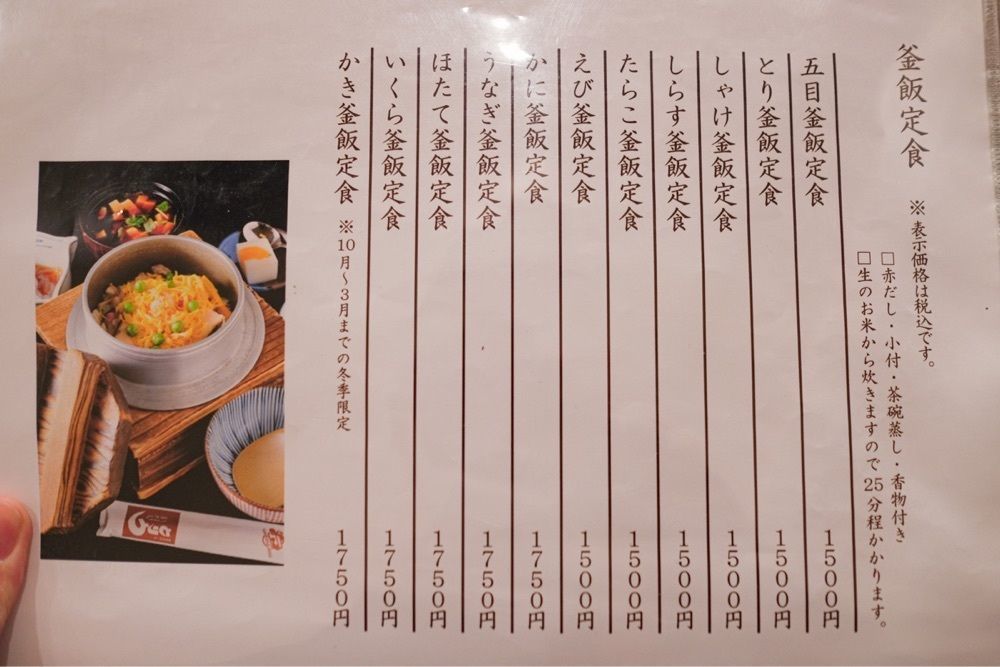 釜飯定食
※表示価格は税込です。
□赤だし・小付・茶碗蒸し・香物付き
□生のお米から炊きますので25分程かかります。
五目釜飯定食 1500円
とり釜飯定食 1500円
しゃけ釜飯定食 1500円
しらす釜飯定食 1500円
たらこ釜飯定食 1500円
えび釜飯定食 1500円
かに釜飯定食 1750円
うなぎ釜飯定食 1750円
ほたて釜飯定食 1750円
いくら釜飯定食 1750円
かき釜飯定食 ※10月〜3月までの冬季限定 1750円